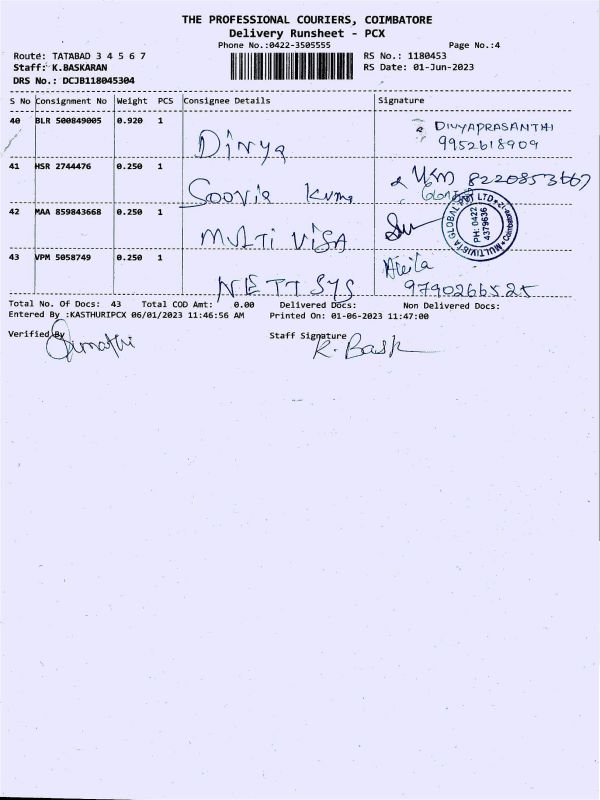 THE PROFESSIONAL COURIERS, COIMBATORE
Delivery Runsheet - PCX
Phone No.:0422-3505555 Page No.:4
Route: TATABAD 3 4 5 6 7 RS No.: 1180453
Staff: K.BASKARAN RS Date: 01-Jun-2023
DRS No.: DCJB118045304
S No Consignment No Weight PCS Consignee Details Signature
40 BLR 500849005 0.920 1 Divya DIVYAPRASANTHI
9952618909
41 HSR 2744476 0.250 1 8220853667
42 MAA 859843668 0.250 1 MULTI VISA
MULTIVISTA GLOBAL PVT LTD Coimbatore-12
PH: 0422
4379636
43 VPM 5058749 0.250 1 NETT SYS
9790266525
Total No. Of Docs: 43 Total COD Amt: 0.00 Delivered Docs: Non Delivered Docs:
Entered By :KASTHURIPCX 06/01/2023 11:46:56 AM Printed On: 01-06-2023 11:47:00
Verified By Staff Signature
K. Bask